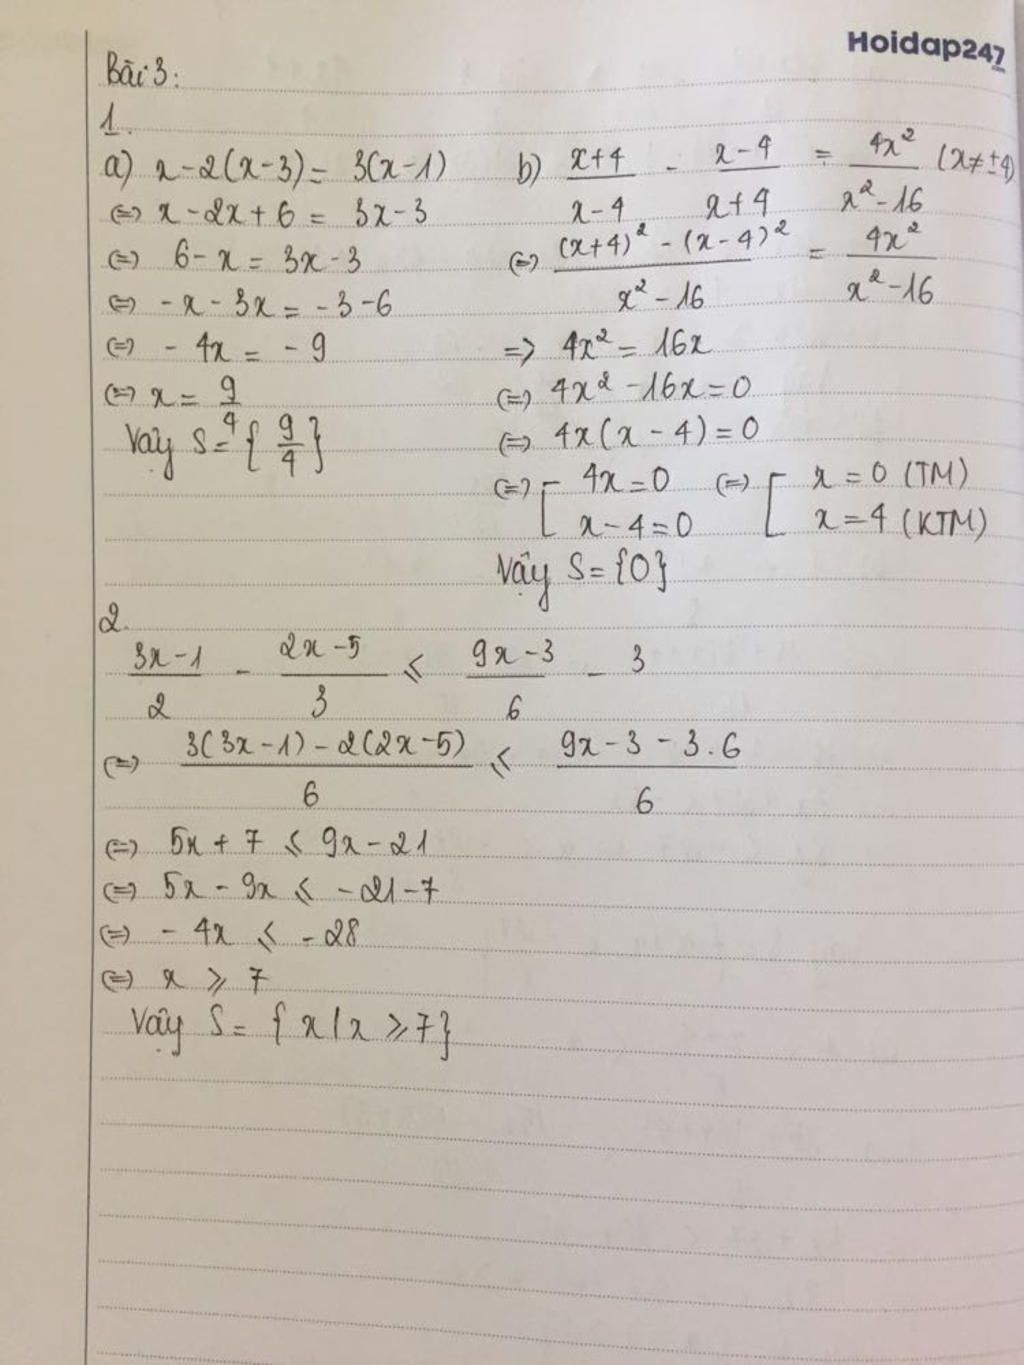 Hoidap247
Bài 3:
1.
a) x-2(x-3) = 3(x-1)
⇔ x-2x+6 = 3x-3
⇔ 6-x = 3x-3
⇔ -x-3x = -3-6
⇔ -4x = -9
⇔ x = 9/4
Vậy S = {9/4}
b) (x+4)/(x-4) - (x-4)/(x+4) = 4x²/(x²-16) (x≠±4)
⇔ ((x+4)² - (x-4)²)/(x²-16) = 4x²/(x²-16)
⇒ 4x² = 16x
⇔ 4x² -16x = 0
⇔ 4x(x-4) = 0
⇔ [ 4x = 0 ⇔ [ x = 0 (TM)
x-4 = 0 x = 4 (KTM)
Vậy S = {0}
2.
(3x-1)/2 - (2x-5)/3 ⩽ (9x-3)/6 - 3
⇔ (3(3x-1) - 2(2x-5))/6 ⩽ (9x-3-3.6)/6
⇔ 5x+7 ⩽ 9x-21
⇔ 5x-9x ⩽ -21-7
⇔ -4x ⩽ -28
⇔ x ⩾ 7
Vậy S = {x/x ⩾ 7}